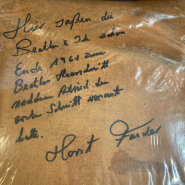 Hier saßen die
Beatles & Ich
Ende 1961 zum
Beatles Haarschnitt
nachdem Astrid den
ersten Schnitt
hatte.
Horst Fascher